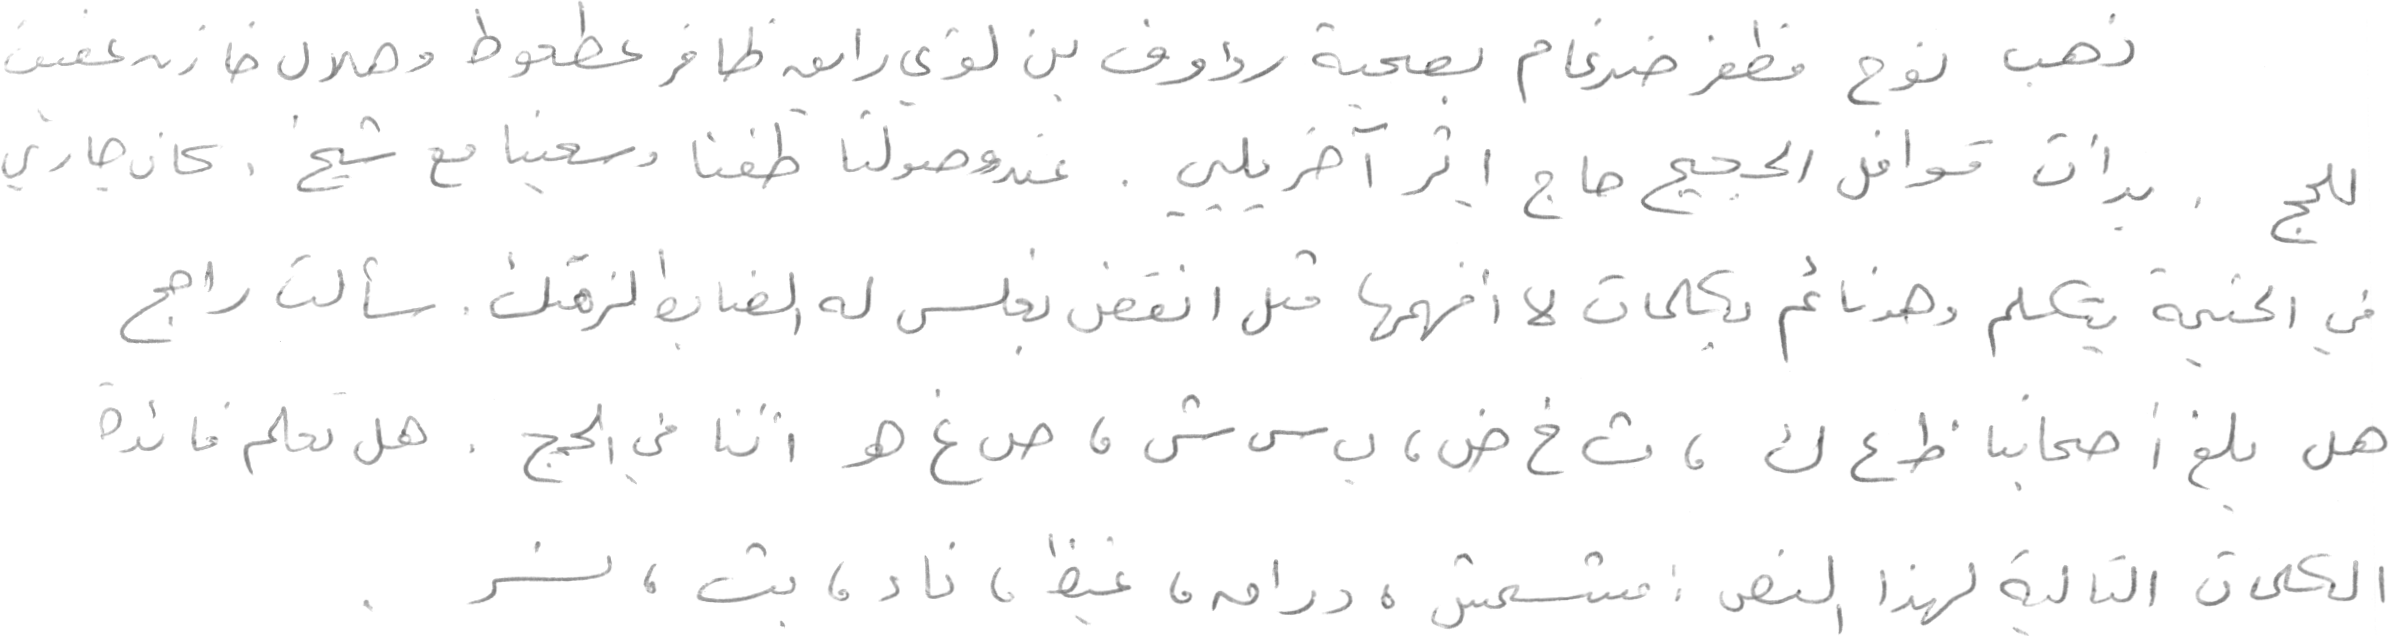 ذهب نوح مظفر ضرغام بصحبة رؤوف بن لؤي رامه ظافر عطعوط وهلال خازنه عفيف
للحج . بدأت قوافل الحجيج حاج إثر آخر يلبي . عند وصولنا طفنا وسعينا مع شيخ . كان جاري
في الخيمة يتكلم وهو نائم بكلمات لا أفهمها مثل انقض بغلس له الضابط لزهتك . سألت راجح
هل بلغ أصحابنا ظ ع ك ، ث خ ض ، ب س ش ، ص غ هو أننا في الحج . هل تعلم فائدة
الكلمات التالية لهذا النص : مشمش ، درامه ، غيظ ، ناد ، بث ، نسر .